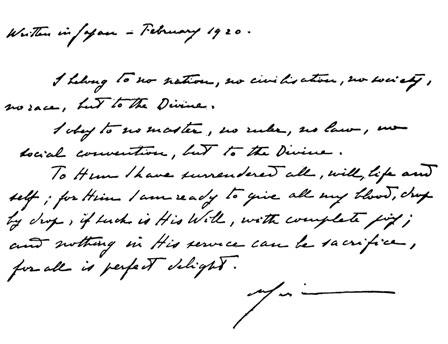 Written in Japan – February 1920.
I belong to no nation, no civilisation, no society,
no race, but to the Divine.
I obey to no master, no ruler, no law, no
social convention, but to the Divine.
To Him I have surrendered all, will, life and
self; for Him I am ready to give all my blood, drop
by drop, if such is His Will, with complete joy;
and nothing in His service can be sacrifice,
for all is perfect delight.